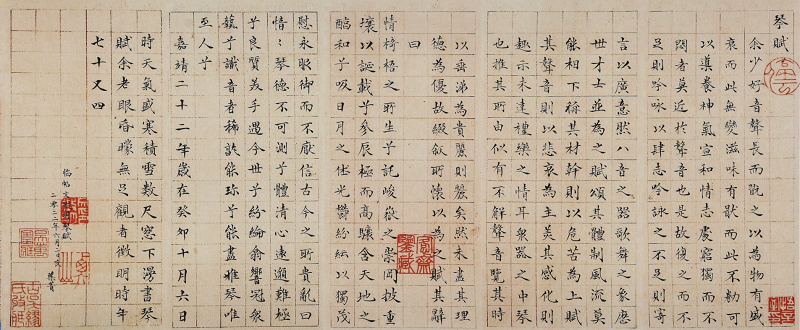 琴賦
余少好音聲長而翫之以為物有盛
衰而此無變滋味有猒而此不勌可
以導養神氣宣和情志處窮獨而不
悶者莫近於聲音也是故復之而不
足則吟詠以肆志吟詠之不足則寄
言以廣意然八音之器歌舞之象歷
世才士並為之賦頌其體制風流莫
能相下稱其材幹則以危苦為上賦
其聲音則以悲哀為主美其感化則
趣示未達禮樂之情耳衆器之中琴
也推其所由似有不解聲音覽其時
以垂涕為貴麗則麗矣然未盡其理
德為優故綴敘所懷以為之賦其辭
曰
情椅梧之所生兮託峻嶽之崇岡披重
壤以誕載兮參辰極而高驤含天地之
醇和兮吸日月之休光鬱紛紜以獨茂
慰永服御而不厭信古今之所貴亂曰
愔〻琴德不可測兮體清心遠邈難極
兮良質美手遇今世兮紛綸翕響冠衆
藝兮識音者稀孰能珍兮能盡雅琴唯
至人兮
嘉靖二十二年歲在癸卯十月六日
時天氣盛寒積雪數尺窓下漫書琴
賦余老眼昏曚無足觀者徵明時年
七十又四
臨帖文
二零二二年六月